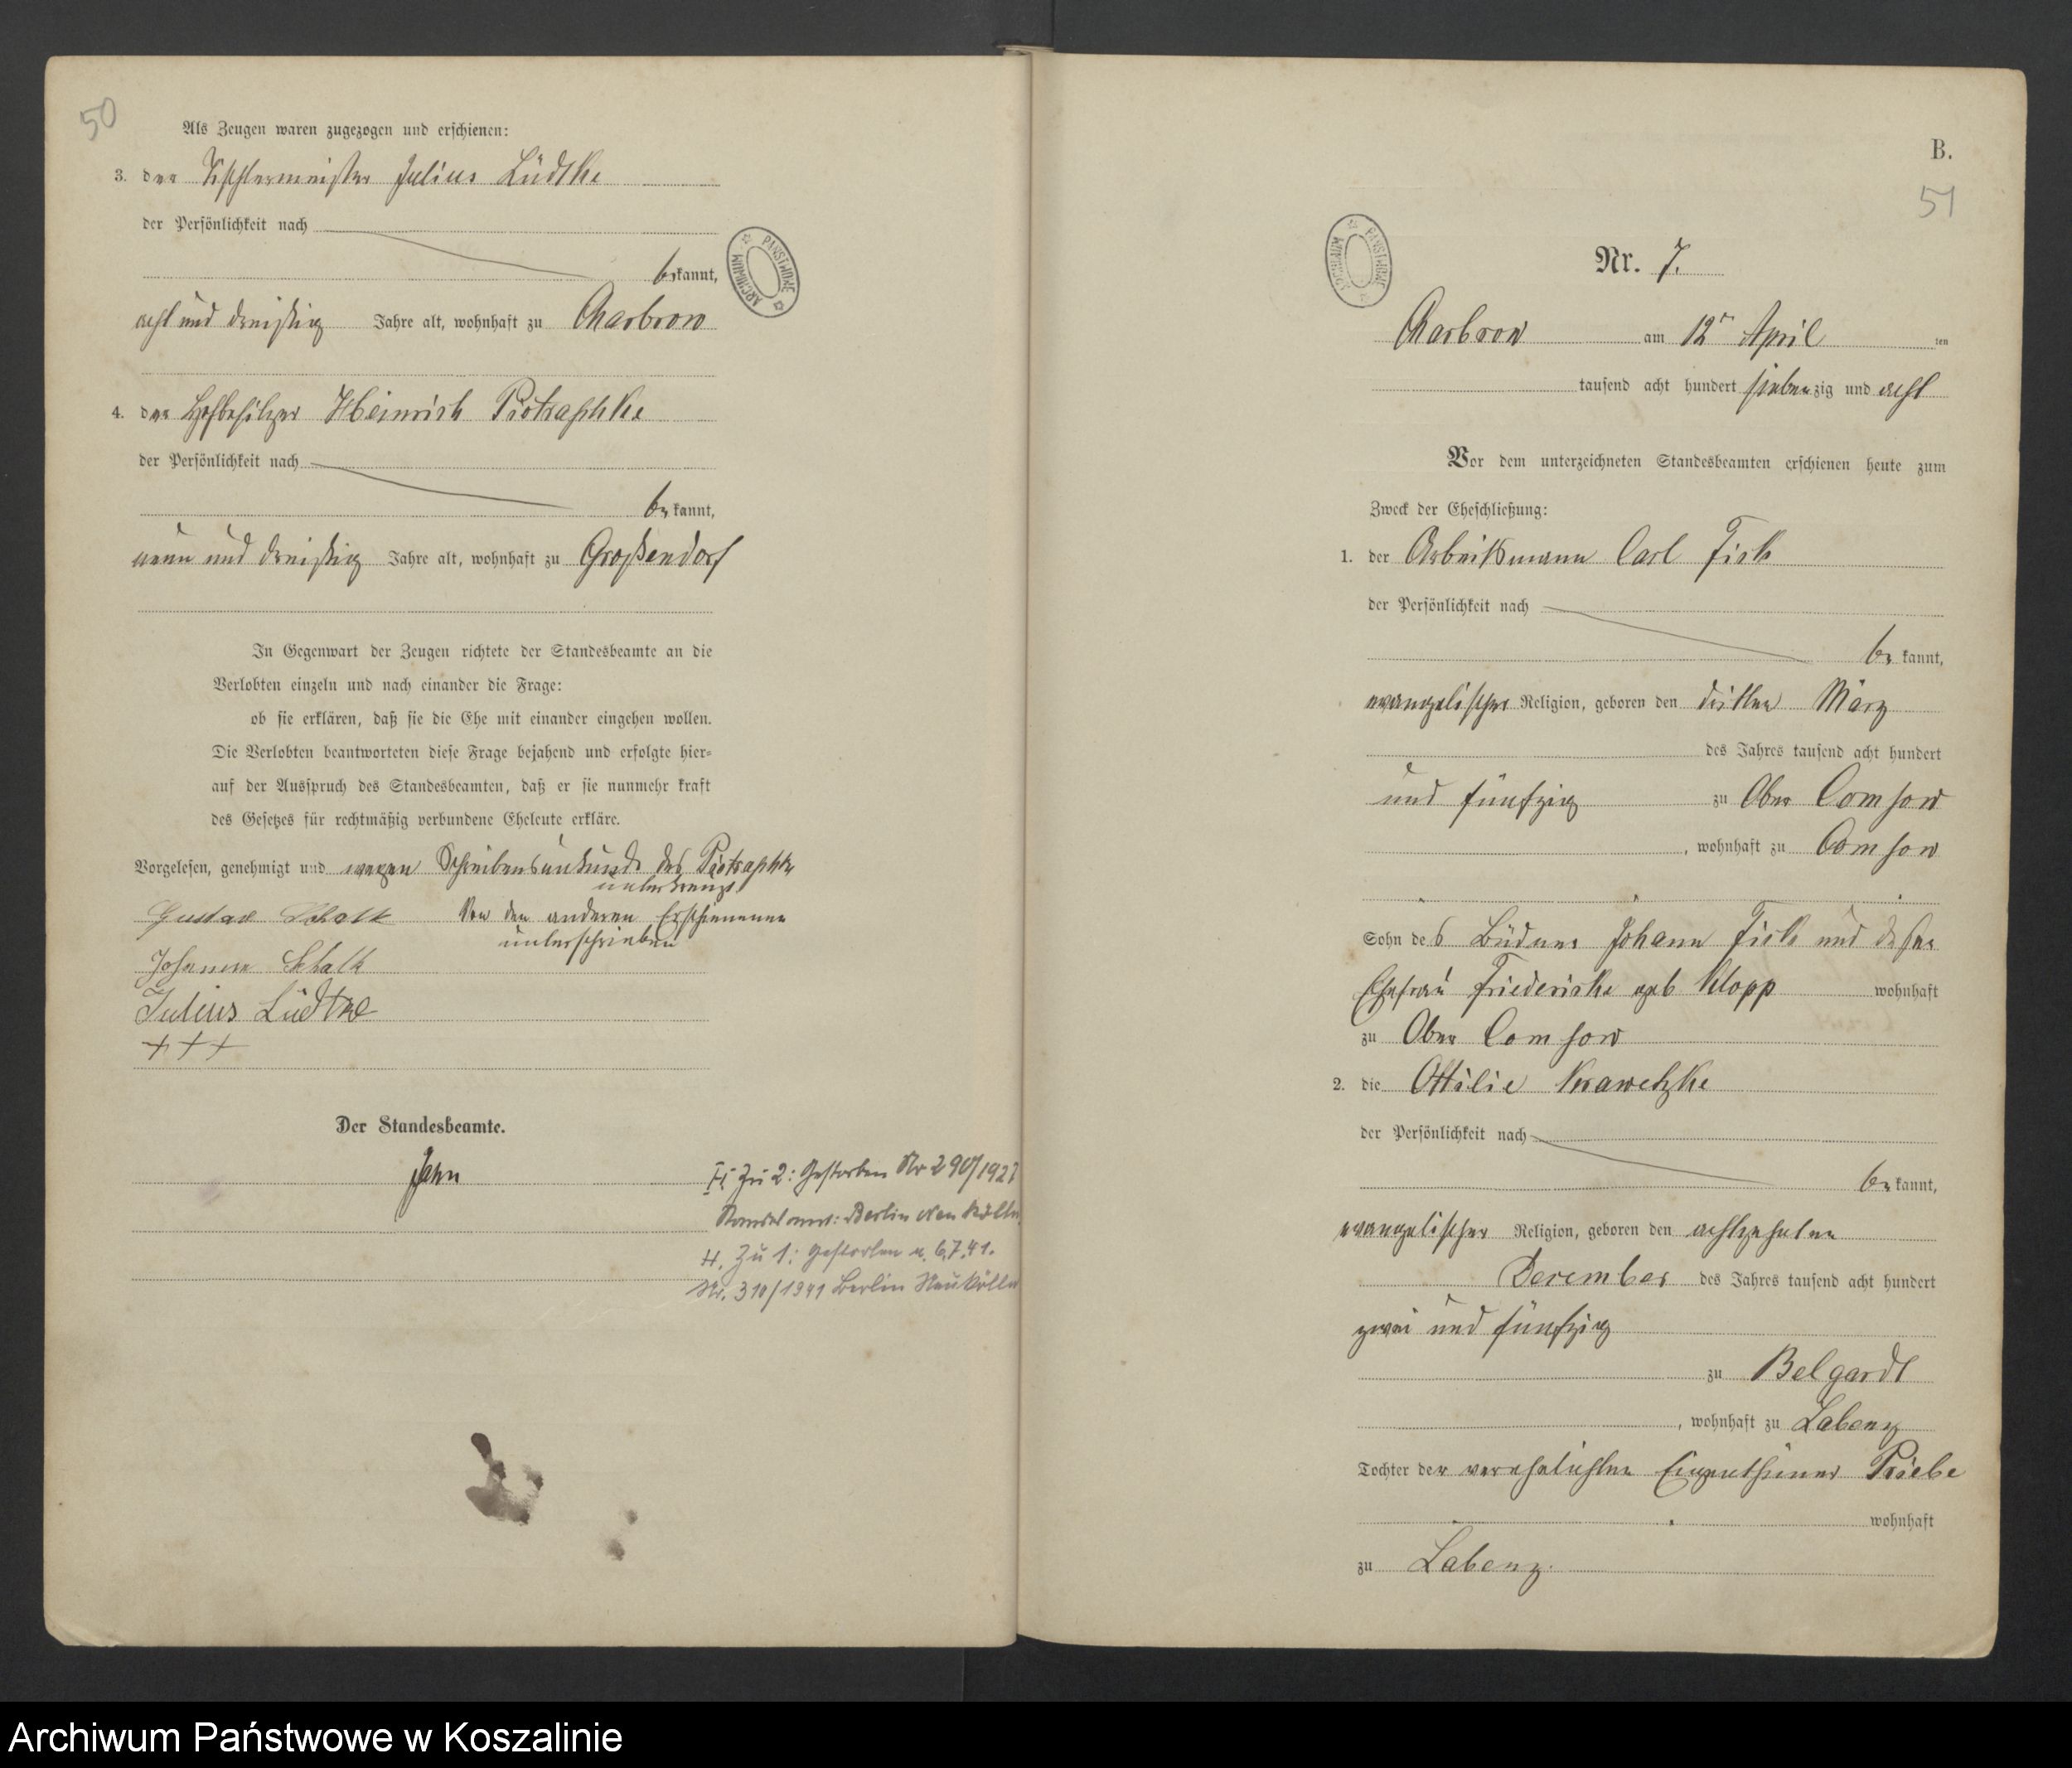 50
Als Zeugen waren zugezogen und erschienen:
3. der Tischlermeister Julius Lüdtke
der Persönlichkeit nach
bekannt,
acht und dreißig Jahre alt, wohnhaft zu Charbrow
4. der Hofbesitzer Heinrich Piotraschke
der Persönlichkeit nach
bekannt,
neun und dreißig Jahre alt, wohnhaft zu Großendorf
In Gegenwart der Zeugen richtete der Standesbeamte an die
Verlobten einzeln und nach einander die Frage:
ob sie erklären, daß sie die Ehe mit einander eingehen wollen.
Die Verlobten beantworteten diese Frage bejahend und erfolgte hier-
auf der Ausspruch des Standesbeamten, daß er sie nunmehr kraft
des Gesetzes für rechtmäßig verbundene Eheleute erkläre.
Vorgelesen, genehmigt und wegen Schreibensunkunde des Piotraschke
unterkreuzt
Von den anderen Erschienenen
unterschrieben
Gustav Schalk
Johanne Schalk
Julius Lüdtke
+++
Der Standesbeamte.
Jahn
II Zu 2: Gestorben Nr 290/1927
Standesamt: Berlin Neukölln
H. Zu 1: gestorben a. 6.7.41.
Nr. 310/1941 Berlin Neukölln
ARCHIWUM PAŃSTWOWE
B.
51
ARCHIWUM PAŃSTWOWE
Nr. 7.
Charbrow am 12ten April ten
tausend acht hundert siebenzig und acht
Vor dem unterzeichneten Standesbeamten erschienen heute zum
Zweck der Eheschließung:
1. der Arbeitsmann Carl Fick
der Persönlichkeit nach
bekannt,
evangelischer Religion, geboren den dritten März
des Jahres tausend acht hundert
und fünfzig zu Ober Comsow
, wohnhaft zu Comsow
Sohn des Büdner Johann Fick und dessen
Ehefrau Friederike geb Klopp wohnhaft
zu Ober Comsow
2. die Ottilie Krawetzke
der Persönlichkeit nach
bekannt,
evangelischer Religion, geboren den achtzehnten
Dezember des Jahres tausend acht hundert
zwei und fünfzig
zu Belgardt
, wohnhaft zu Labenz
Tochter der verehelichten Eigenthümer Priebe
wohnhaft
zu Labenz.
Archiwum Państwowe w Koszalinie